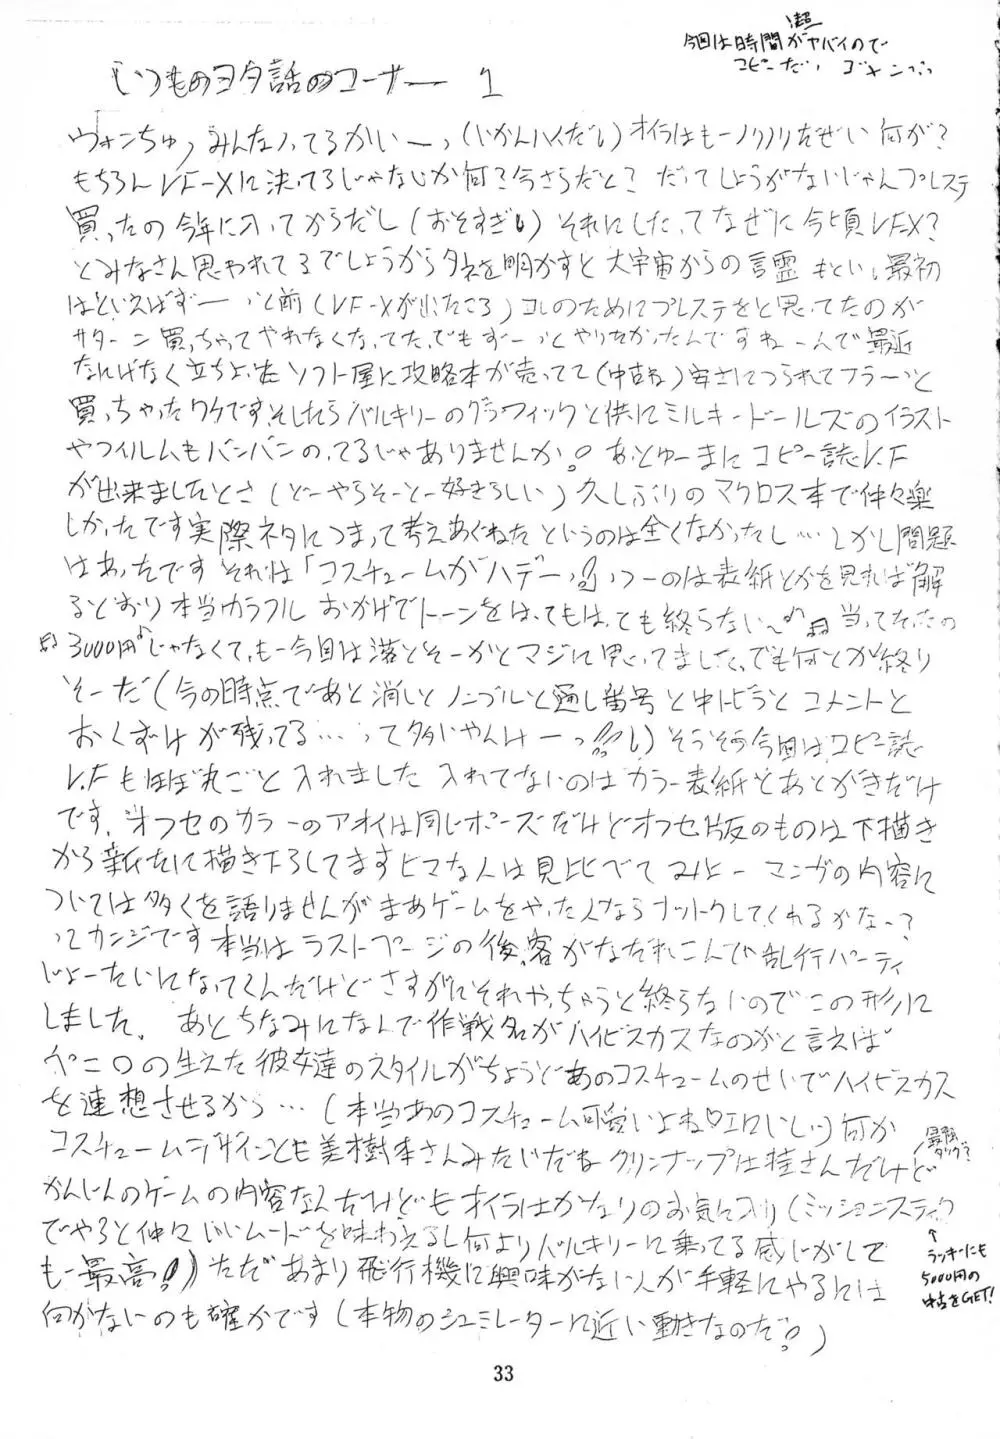 今回は時間が超ヤバイので
コピーだい ゴメンぷぅ
いつものヨタ話のコーナー 1
ウォンちゅっみんなノってるかいーっ(いかんハイだし)オイラはもーノリノリだぜい何が?
もちろんVF-Xに決ってるじゃないか何?今さらだと?だってしょうがないじゃんプレステ
買ったの今年に入ってからだし(おそすぎい)それにしたってなぜに今頃VFX?
とみなさん思われてるでしょうからタネを明かすと大宇宙からの言霊もとい、最初
はといえばずーーっと前(VF-Xが出たころ)コレのためにプレステをと思ってたのが
サターン買っちゃってやれなくなってた、でもずーっとやりたかったんですねーんで最近
なにげなく立ちよったソフト屋に攻略本が売ってて(中古ね)安さにつられてフラーっと
買っちゃったワケです、そしたらバルキリーのグラフィックと供にミルキードールズのイラスト
やフィルムもバンバンのってるじゃありませんか!あっとゆーまにコピー誌V.F
が出来ましたとさ(どーやらそーとー好きらしい)久しぶりのマクロス本で仲々楽
しかったです実際ネタにつまって考えあぐねたというのは全くなかったし…しかし問題
はあったです それは「コスチュームがハデーっ!」っつーのは表紙とかを見れば解
るとおり本当カラフル おかげでトーンをはってもはっても終らない〜♪♬当ってくだの
♬3000円♪じゃなくて、もー今回は落とそーかとマジに思ってました、でも何とか終り
そーだ(今の時点であと消しとノンブルと通し番号と中トビラとコメントと
おくずけが残ってる…って多いやんけーっ!!い)そうそう今回はコピー誌
V.Fもほぼ丸ごと入れました入れてないのはカラー表紙とあとがきだけ
です、オフセのカラーのアオイは同じポーズだけどオフセ版のものは下描き
から新たに描き下ろしてますヒマな人は見比べてみよー マンガの内容に
ついては多くを語りませんがまあゲームをやった人ならナットクしてくれるかなー?
ってカンジです本当はラストページの後、客がなだれこんで乱行パーティ
じょーたいになってくんだけどさすがにそれやっちゃうと終らないのでこの形に
しました。 あとちなみになんで作戦名がハイビスカスなのかと言えば
ペニ○の生えた彼女達のスタイルがちょうどあのコスチュームのせいでハイビスカス
を連想させるから…(本当あのコスチューム可愛いよね♡エロいしい)何か
コスチュームデザインとも美樹本さんみたいだねクリンナップは桂さんだけど
最強タッグ?
かんじんのゲームの内容なんだけどもオイラはかなりのお気に入り(ミッションスティック
でやると仲々いいムードを味わえるし何よりバルキリーに乗ってる感じがして
もー最高!)ただあまり飛行機に興味がない人が手軽にやるには
↑ラッキーにも
5000円の
中古をGET!
何がないのも確かです(本物のシュミレーターに近い動きなのだ!)
33